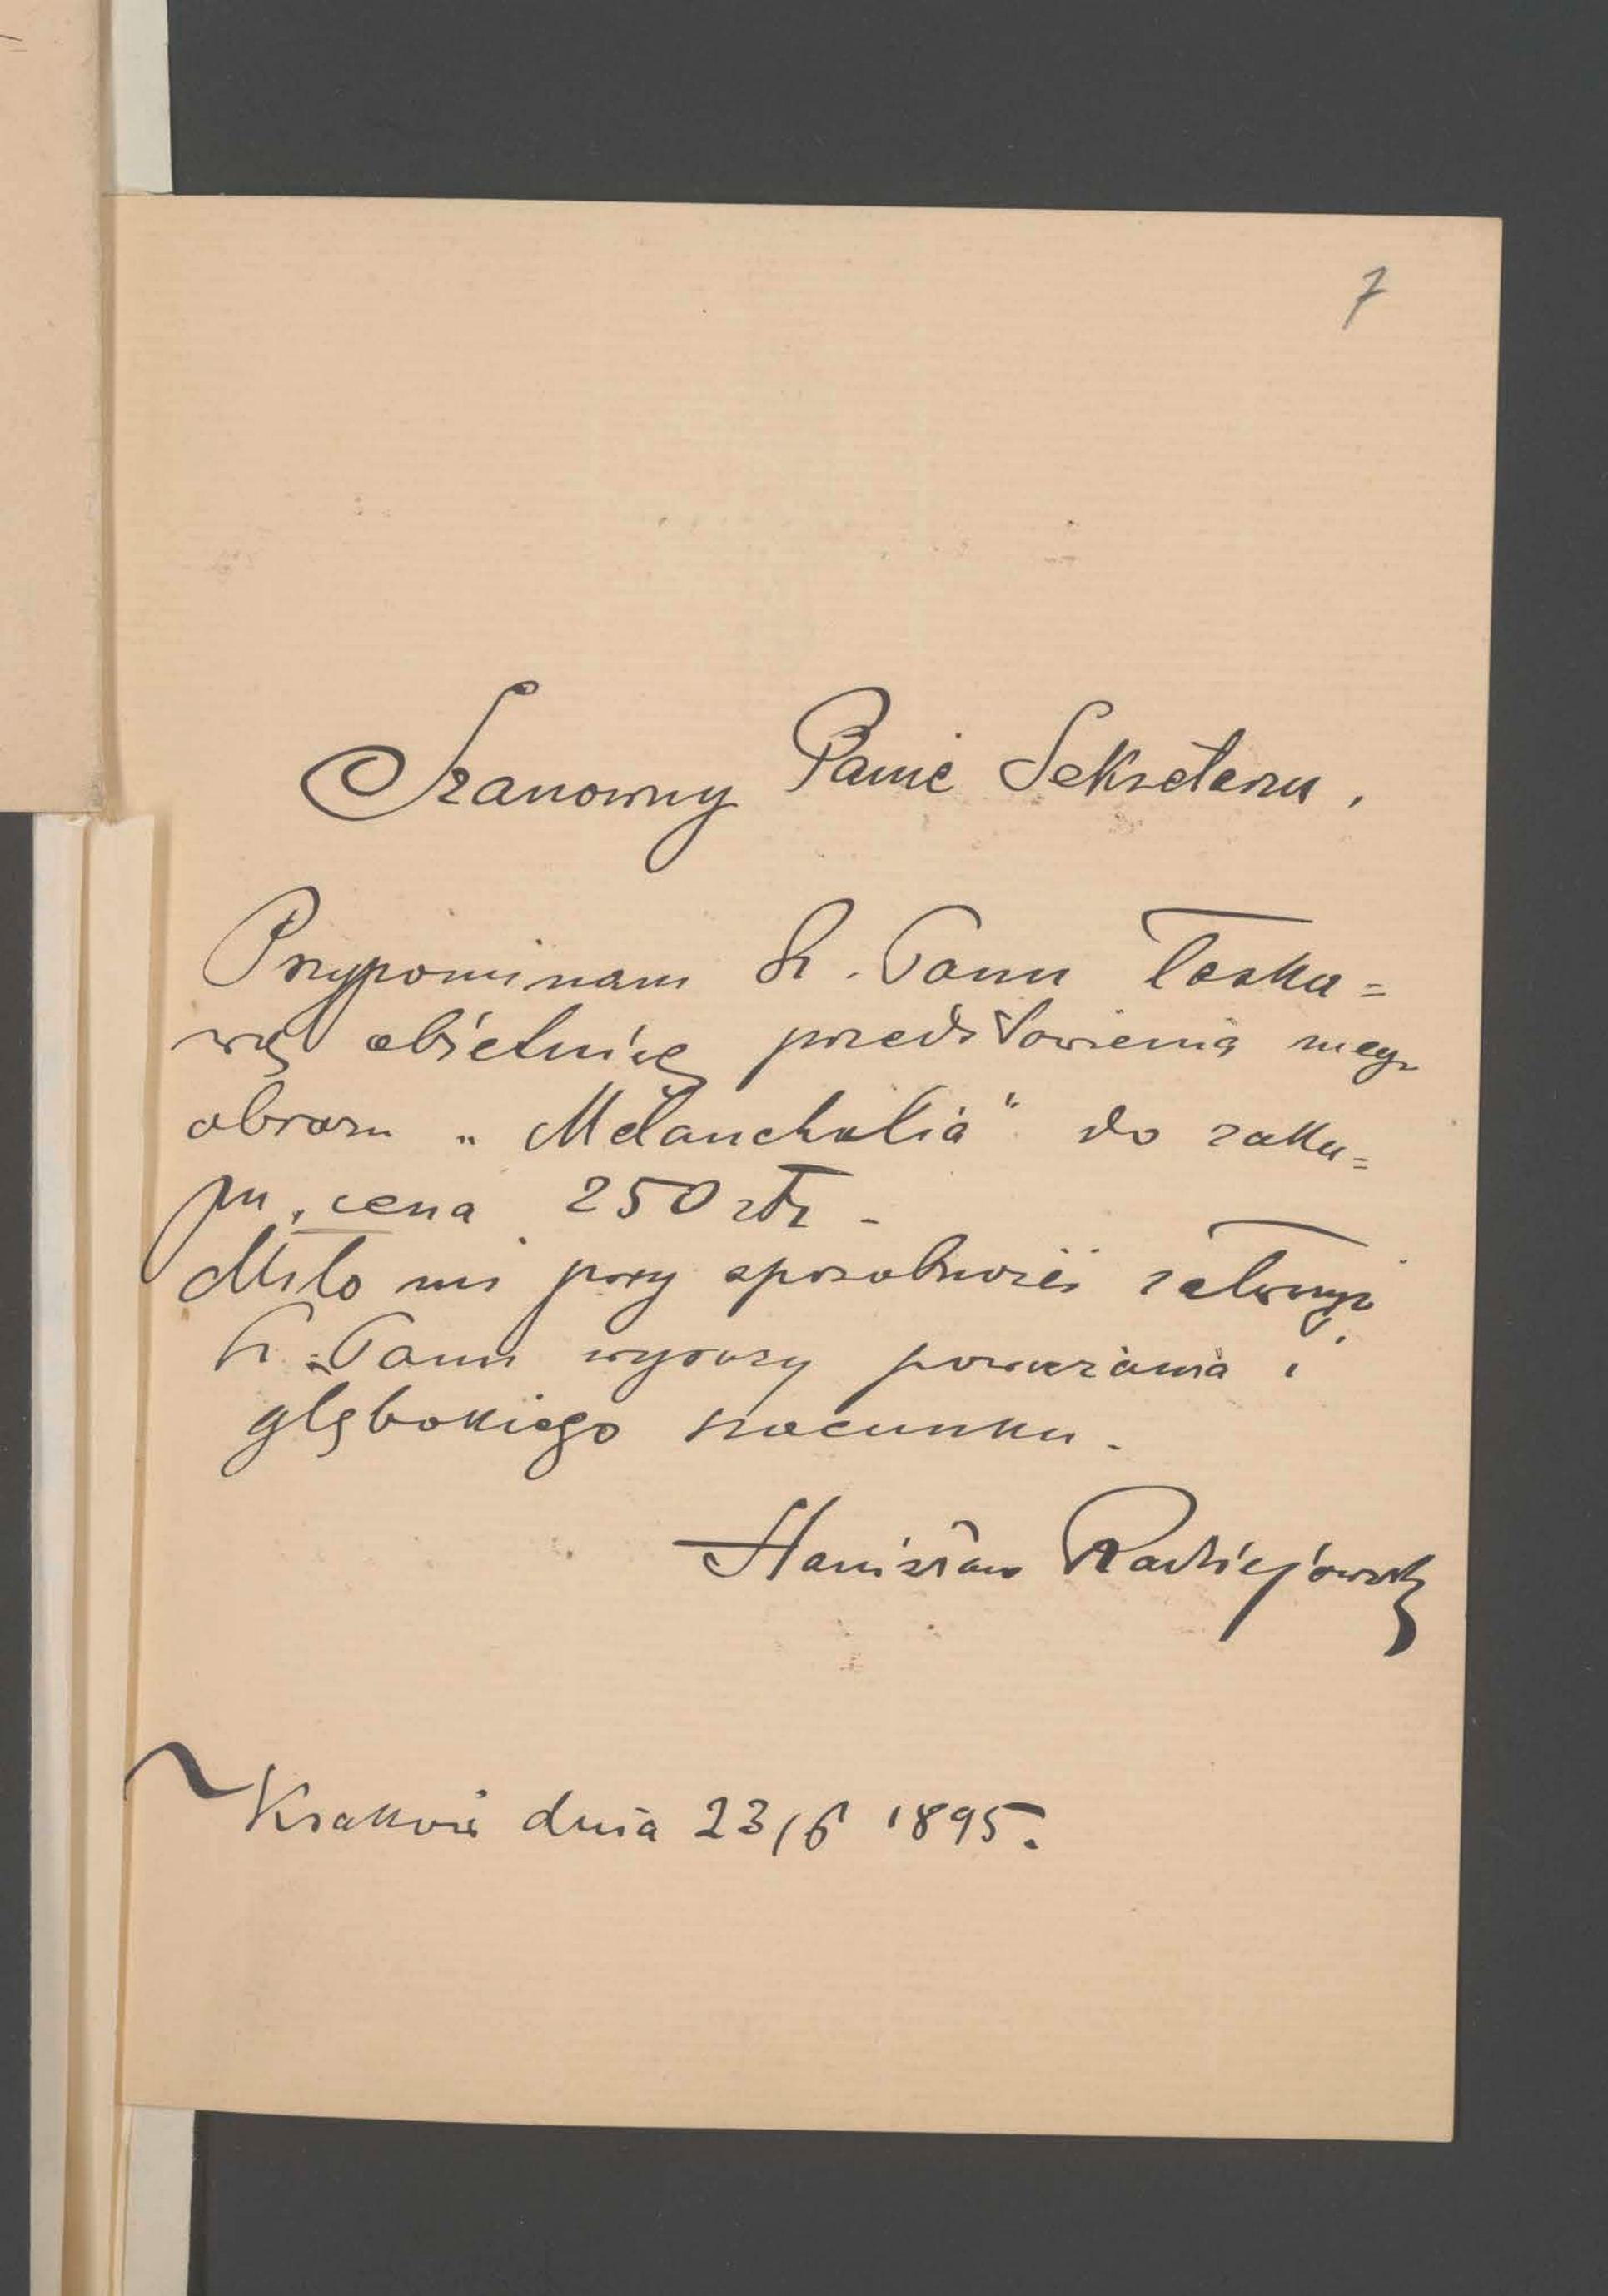 7
Szanowny Panie Sekretarzu,
Przypominam Sz. Panu łaska=
wą obietnicę przedstawienia mego
obrazu „Melancholia" do zaku=
pu, cena 250 złr -
Miło mi przy sposobności załączyć
Sz. Panu wyrazy poważania i
głębokiego szacunku.
Stanisław Radziejowski
Kraków dnia 23/6 1895.